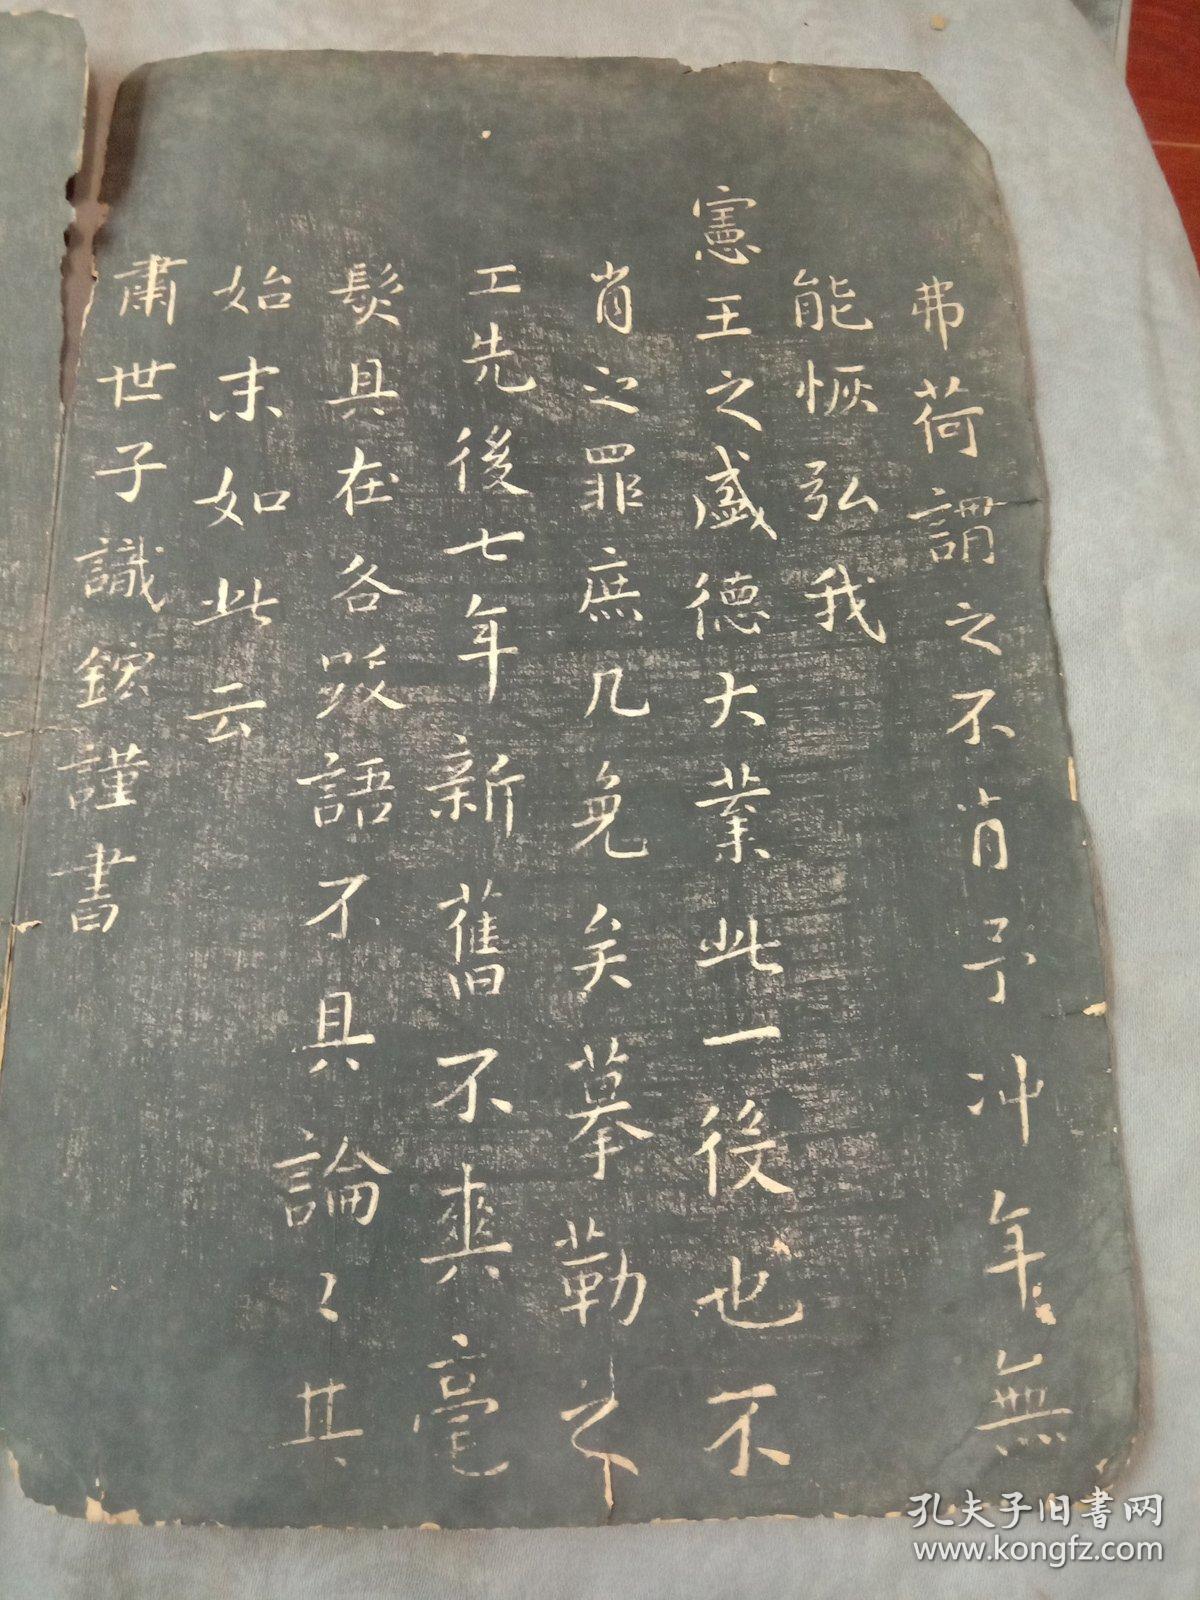 弗荷謂之不肖予冲年無
能恢弘我
憲王之盛德大業此一役也不
肖之罪庶几免矣摹勒之
工先後七年新舊不爽毫
髮具在各跋語不具論々其
始末如此云
肅世子識鋐謹書
孔夫子旧书网
www.kongfz.com